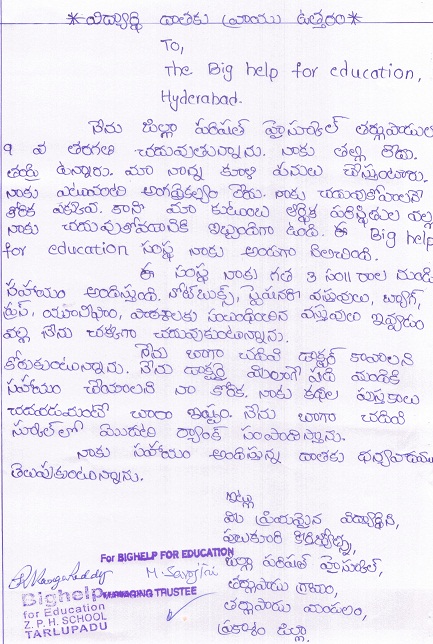 * విద్యార్థి దాతకు వ్రాయు ఉత్తరం *
To,
The Big help for education,
Hyderabad.
నేను జిల్లా పరిషత్ హైస్కూల్ తర్లుపాడులో
9 వ తరగతి చదువుతున్నాను. నాకు తల్లి లేదు.
తండ్రి ఉన్నారు. మా నాన్న కూలి పనులు చేస్తుంటారు.
నాకు ఎటువంటి అంగవైకల్యం లేదు. నాకు చదువుకోవాలనే
కోరిక ఎక్కువ. కాని మా కుటుంబ ఆర్థిక పరిస్థితుల వల్ల
నాకు చదువుకోవడానికి ఇబ్బందిగా ఉంది. ఈ Big help
for education సంస్థ నాకు అండగా నిలిచింది.
ఈ సంస్థ నాకు గత 3 సం॥రాల నుండి
సహాయం అందిస్తుంది. నోట్ బుక్స్, స్టేషనరీ వస్తువులు, బ్యాగ్,
యూనిఫాం, పాఠశాలకు సంబంధించిన వస్తువులు ఇవ్వడం
వల్ల నేను చక్కగా చదువుకుంటున్నాను.
నేను బాగా చదివి డాక్టర్ కావాలని
కోరుకుంటున్నాను. నేను డాక్టర్నై
సహాయం చేయాలని నా కోరిక. నాకు కథల పుస్తకాలు
చదవడమంటే చాలా ఇష్టం. నేను బాగా చదివి
స్కూల్‌లో మొదటి ర్యాంక్ సంపాదిస్తాను.
నాకు సహాయం అందిస్తున్న దాతకు ధన్యవాదములు
తెలుపుకుంటున్నాను.
ఇట్లు
మీ ప్రియమైన విద్యార్థిని,
జిల్లా పరిషత్ హైస్కూల్,
తర్లుపాడు గ్రామం,
తర్లుపాడు మండలం,
ప్రకాశం జిల్లా.
For BIGHELP FOR EDUCATION
M. Sarojini
MANAGING TRUSTEE
Bighelp
for Education
Z. P. H. SCHOOL
TARLUPADU